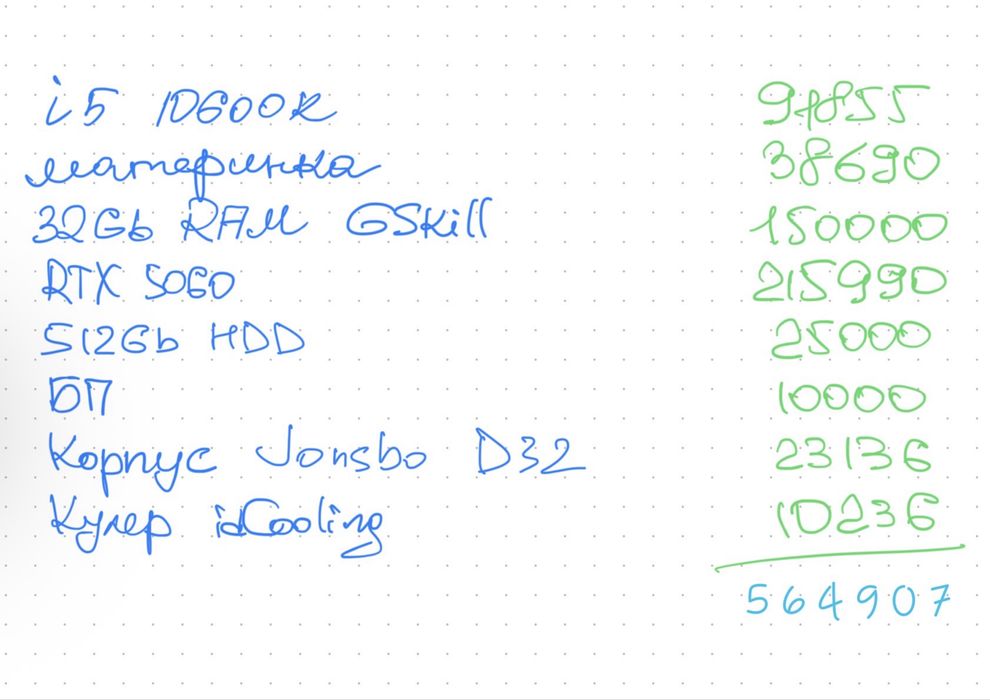 i5 10600K 91855
материнка 38690
32Gb RAM GSkill 150000
RTX 5060 215990
512Gb HDD 25000
БП 10000
Корпус Jonsbo D32 23136
Кулер idCooling 10236
564907